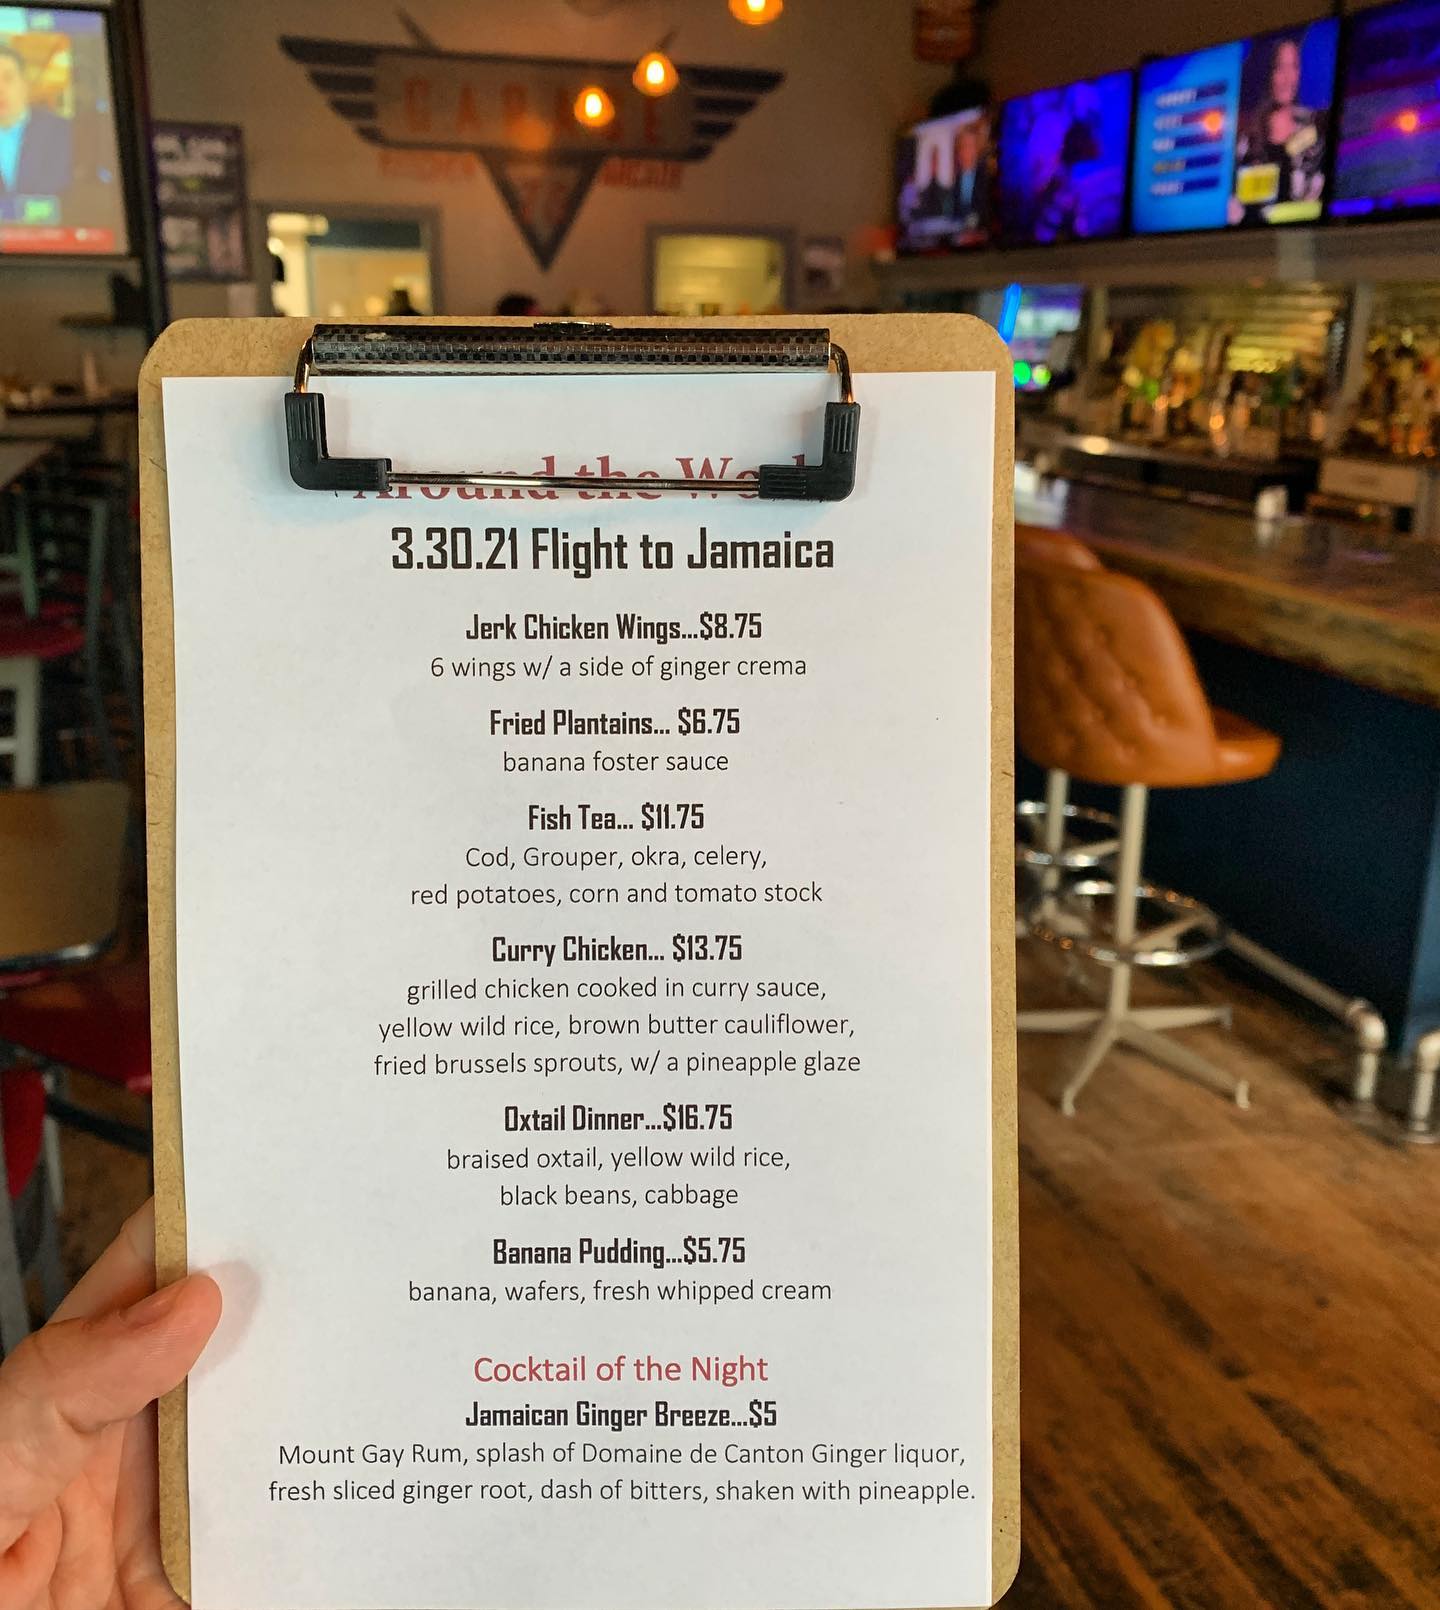 GARAGE
Around the
3.30.21 Flight to Jamaica
Jerk Chicken Wings...$8.75
6 wings w/ a side of ginger crema
Fried Plantains... $6.75
banana foster sauce
Fish Tea... $11.75
Cod, Grouper, okra, celery,
red potatoes, corn and tomato stock
Curry Chicken... $13.75
grilled chicken cooked in curry sauce,
yellow wild rice, brown butter cauliflower,
fried brussels sprouts, w/ a pineapple glaze
Oxtail Dinner...$16.75
braised oxtail, yellow wild rice,
black beans, cabbage
Banana Pudding...$5.75
banana, wafers, fresh whipped cream
Cocktail of the Night
Jamaican Ginger Breeze...$5
Mount Gay Rum, splash of Domaine de Canton Ginger liquor,
fresh sliced ginger root, dash of bitters, shaken with pineapple.